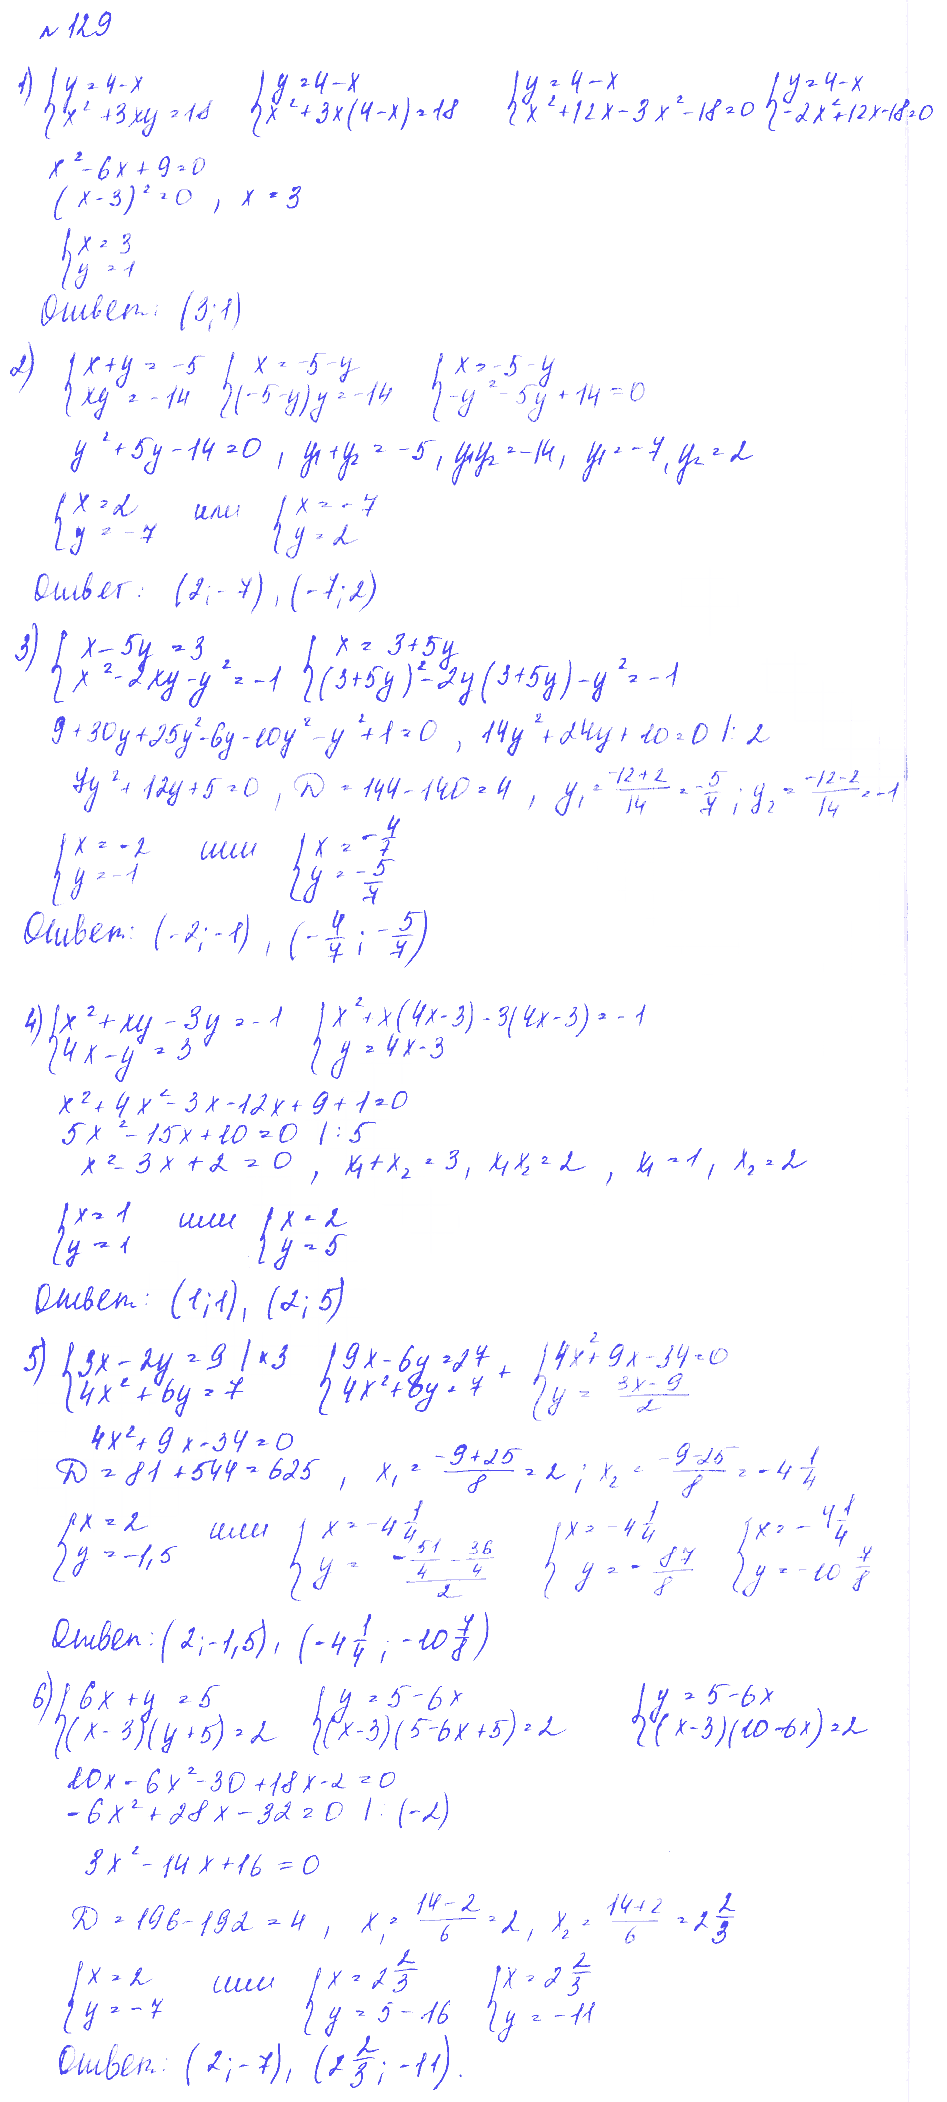 №129
1) { y = 4-x   { y = 4-x   { y = 4-x   { y = 4-x
x² + 3xy = 18   x² + 3x(4-x) = 18   x² + 12x - 3x² - 18 = 0   -2x² + 12x - 18 = 0
x² - 6x + 9 = 0
(x-3)² = 0 , x = 3
{ x = 3
y = 1
Ответ: (3;1)
2) { x + y = -5   { x = -5-y   { x = -5-y
xy = -14   (-5-y)y = -14   -y² - 5y + 14 = 0
y² + 5y - 14 = 0 , y₁ + y₂ = -5, y₁y₂ = -14, y₁ = -7, y₂ = 2
{ x = 2   или   { x = -7
y = -7   y = 2
Ответ: (2;-7), (-7;2)
3) { x - 5y = 3   { x = 3+5y
x² - 2xy - y² = -1   (3+5y)² - 2y(3+5y) - y² = -1
9 + 30y + 25y² - 6y - 10y² - y² + 1 = 0 , 14y² + 24y + 10 = 0 |:2
7y² + 12y + 5 = 0 , D = 144 - 140 = 4 , y₁ = (-12+2)/14 = -5/7 ; y₂ = (-12-2)/14 = -1
{ x = -2   или   { x = -4/7
y = -1   y = -5/7
Ответ: (-2;-1), (-4/7; -5/7)
4) { x² + xy - 3y = -1   { x² + x(4x-3) - 3(4x-3) = -1
4x - y = 3   y = 4x-3
x² + 4x² - 3x - 12x + 9 + 1 = 0
5x² - 15x + 10 = 0 |:5
x² - 3x + 2 = 0 , x₁ + x₂ = 3, x₁x₂ = 2 , x₁ = 1, x₂ = 2
{ x = 1   или   { x = 2
y = 1   y = 5
Ответ: (1;1), (2;5)
5) { 3x - 2y = 9 |×3   { 9x - 6y = 27 +   { 4x² + 9x - 34 = 0
4x² + 6y = 7   4x² + 6y = 7   y = (3x-9)/2
4x² + 9x - 34 = 0
D = 81 + 544 = 625 , x₁ = (-9+25)/8 = 2 ; x₂ = (-9-25)/8 = -4 1/4
{ x = 2   или   { x = -4 1/4   { x = -4 1/4   { x = -4 1/4
y = -1,5   y = (-51/4 - 36/4)/2   y = -87/8   y = -10 7/8
Ответ: (2;-1,5), (-4 1/4; -10 7/8)
6) { 6x + y = 5   { y = 5-6x   { y = 5-6x
(x-3)(y+5) = 2   (x-3)(5-6x+5) = 2   (x-3)(10-6x) = 2
10x - 6x² - 30 + 18x - 2 = 0
-6x² + 28x - 32 = 0 |:(-2)
3x² - 14x + 16 = 0
D = 196 - 192 = 4 , x₁ = (14-2)/6 = 2, x₂ = (14+2)/6 = 2 2/3
{ x = 2   или   { x = 2 2/3   { x = 2 2/3
y = -7   y = 5-16   y = -11
Ответ: (2;-7), (2 2/3; -11).